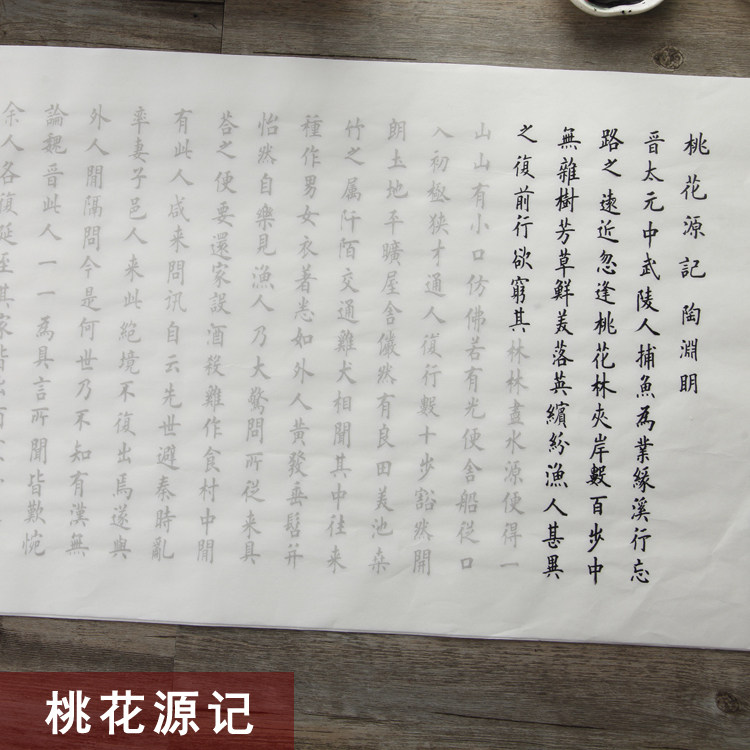 桃花源記 陶淵明
晉太元中武陵人捕魚為業緣溪行忘
路之遠近忽逢桃花林夾岸數百步中
無雜樹芳草鮮美落英繽紛漁人甚異
之復前行欲窮其林林盡水源便得一
山山有小口仿佛若有光便舍船從口
入初極狹才通人復行數十步豁然開
朗土地平曠屋舍儼然有良田美池桑
竹之屬阡陌交通雞犬相聞其中往來
種作男女衣著悉如外人黃發垂髫并
怡然自樂見漁人乃大驚問所從来具
答之便要還家設酒殺雞作食村中聞
有此人咸来問訊自云先世避秦時亂
率妻子邑人来此絕境不復出焉遂與
外人間隔問今是何世乃不知有漢無
論魏晉此人一一為具言所聞皆歎惋
余人各復延至其家皆出
桃花源记